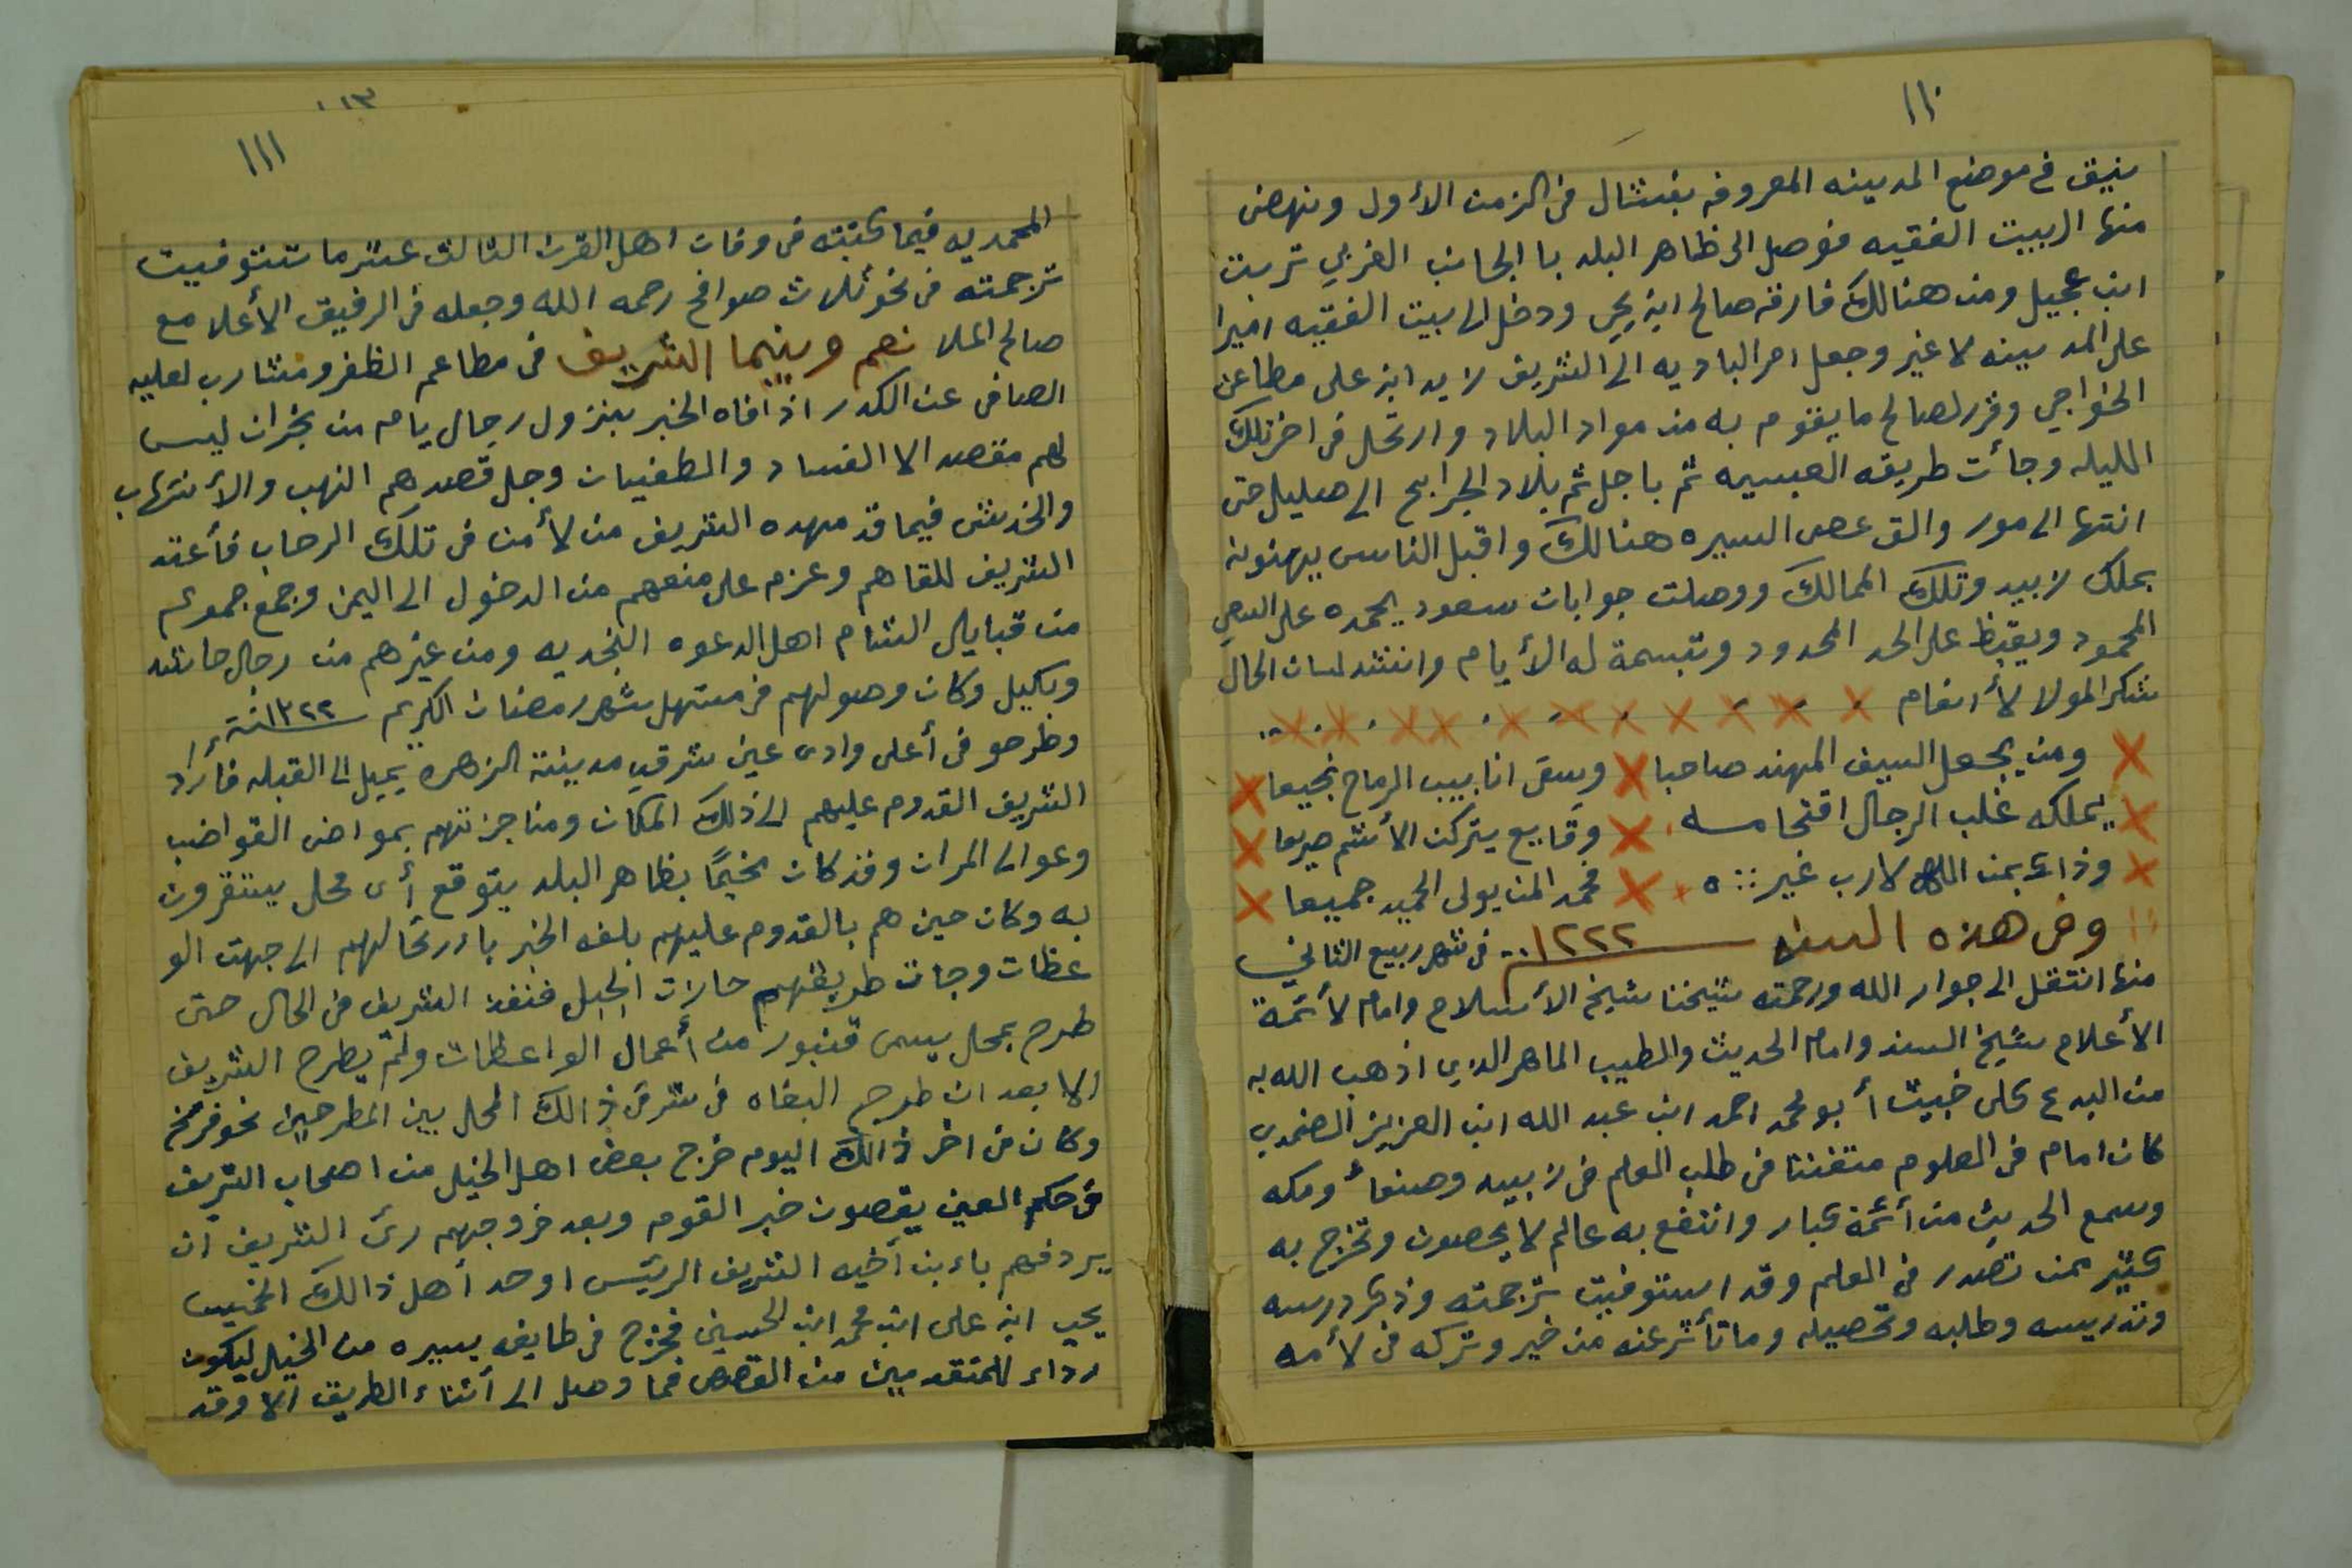 ١١٠
ينيق في موضع المدينه المعروفه بفشال في الزمن الأول ونهض
منها الى بيت الفقيه فوصل الى ظاهر البلد با الجانب الغربي تربت
ابن عجيل ومن هنالك فارقه صالح ابن يحي ودخل الى بيت الفقيه اميرا
على المدينه لا غير وجعل امر الباديه الى الشريف لا يد ابن على مطاعن
الخواجي وقرر لصالح ما يقوم به من مواد البلاد وارتحل في اخر تلك
الليله وجأت طريقه العبسيه ثم با جل ثم بلاد الجرابح الى صليل حتى
انتها الى مور والقى عصى السيره هنالك واقبل الناس يهنونه
بملك زبيد وتلك الممالك ووصلت جوابات سعود يحمده على السعي
المحمود ويقبظ على الحد المحدود وتبسمة له الأيام وانشد لسان الحال
شكر المولا لأ انعام
ومن يجعل السيف المهند صاحبا وسقى انابيب الرماح نجيعا
يملكه غلب الرجال اقتحامه وقايع يتركن الأشم صريعا
وذاك بمن الله لا رب غيره فحمد المن يولى الحميد جميعا
وفي هذه السنه ١٢٢٢ في شهر ربيع الثاني
منها انتقل الى جوار الله ورحمته شيخنا شيخ الأسلام وامام لأئمة
الأعلام شيخ السند وامام الحديث والطبيب الماهر الذي اذهب الله به
من البدع كلى خبيث أبو محمد احمد ابن عبد الله ابن العزيز الضمدي
كان امام في العلوم متفننا في طلب العلم في زبيد وصنعأ ومكه
وسمع الحديث من أئمة كبار وانتفع به عالم لا يحصون وتخرج به
كثير ممن تصدر في العلم وقد استوفيت ترجمته وذكر درسه
وتدريسه وطلبه وتحصيله وما تأثر عنه من خير وتركه في لأمه
١١٣
١١١
المحمديه فيما كتبته في وفات اهل القرن الثالث عشر ما تستوفيت
ترجمته في نحو ثلاث صوافح رحمه الله وجعله في الرفيق الأعلا مع
صالح الملا نعم وبينما الشريف في مطاعم الظفر ومشارب لعليه
الصافى عن الكدر اذ أفاه الخبر بنزول رجال يام من نجران ليس
لهم مقصد الا الفساد والطغيان وجل قصدهم النهب والأنتهاب
والخدش فيما قد مهده الشريف من لأ من في تلك الرحاب فأعتد
الشريف للقاهم وعزم على منعهم من الدخول الى اليمن وجمع جموعه
من قبايل الشام اهل الدعوه النجديه ومن غيرهم من رجال حاشد
وبكيل وكان وصولهم في مستهل شهر رمضان الكريم سنة ١٢٢٢
وطرحو في أعلى وادى عين شرقي مدينة الزهره يميل الى القبله فأراد
الشريف القدوم عليهم الى ذلك المكان ومناجزتهم بمواض القواضب
وعوالى المران وقد كان مخيمًا بظاهر البلد يتوقع أى محل يستقرون
به وكان حين هم بالقدوم عليهم بلغه الخبر بارتحالهم الى جهت الو
عظات وجات طريقهم حازت الجبل فنفذ الشريف في الحال حتى
طرح بمحل يسمى قنبور من أعمال الواعظات ولم يطرح الشريف
الا بعد ان طرح البغاه في شرقى ذالك المحل بين المطرحين نحو فرسخ
وكان في اخر ذالك اليوم خرج بعض اهل الخيل من اصحاب الشريف
في حكم العين يقصون خبر القوم وبعد خروجهم رئ الشريف ان
يردفهم باءبن أخيه الشريف الرئيس اوحد أهل ذالك الخميس
يحيى ابن على ابن محمد ابن الحسين فخرج في طايفه يسيره من الخيل ليكون
رداء للمتقدمين من القصص فما وصل الى أثناء الطريق الا وقد